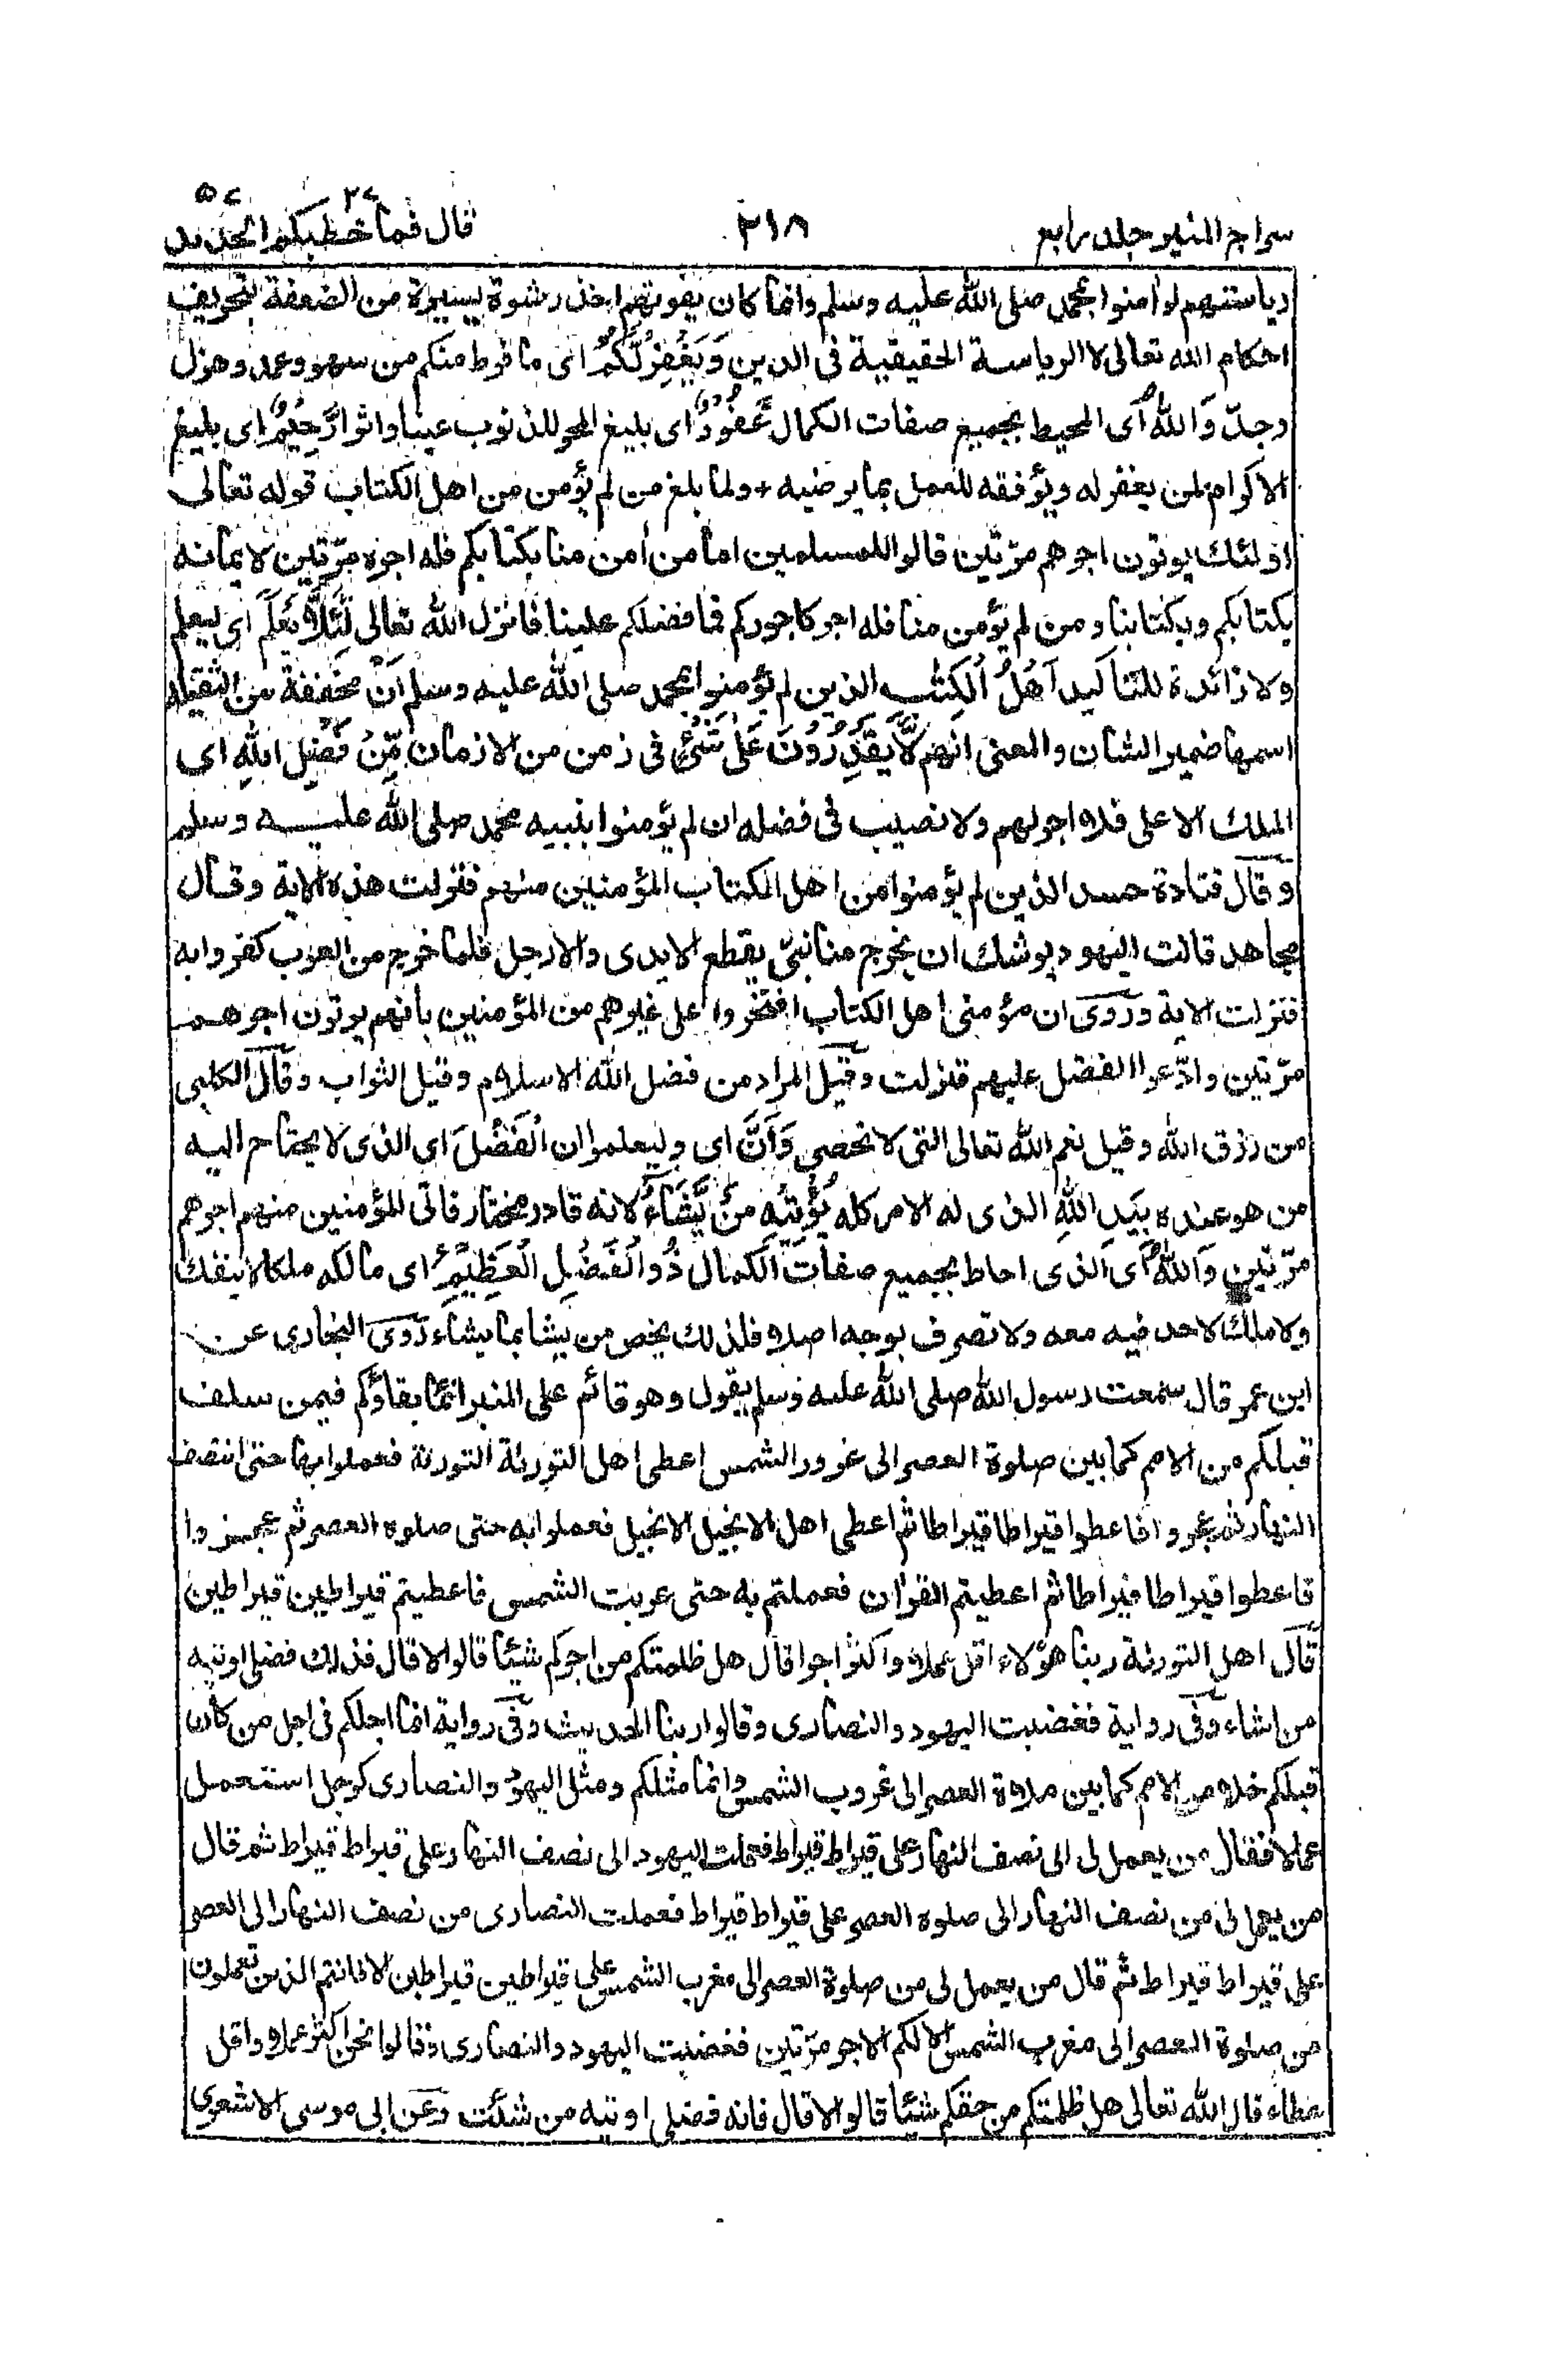 سراج المنير جلد رابع ٢١٨ قال فما خطبكم ٢٧ الحديد ٥٧
رياستهم لو امنوا بمحمد صلى الله عليه وسلم وانما كان يفوتهم اخذ رشوة يسيرة من الضعفة بتحريف
احكام الله تعالى لا الرياسة الحقيقية فى الدين وَيَغْفِرْ لَكُمْ اى ما فرط منكم من سهو وعمد وهزل
وجدّ وَاللّٰهُ اى المحيط بجميع صفات الكمال غَفُوْرٌ اى بليغ المحو للذنوب عينا واثرا رَّحِيْمٌ اى بليغ
الاكرام لمن يغفر له ويؤفقه للعمل بما يرضيه + ولما بلغ من لم يؤمن من اهل الكتاب قوله تعالى
اولئك يوتون اجرهم مرّتين قالوا للمسلمين اما من اٰمن منا بكتابكم فله اجره مرّتين لايمانه
بكتابكم وبكتابنا ومن لم يؤمن منا فله اجر كاجوركم فما فضلكم علينا فانزل الله تعالى لِّئَلَّا يَعْلَمَ اى ليعلم
ولا زائدة للتاكيد اَهْلُ الْكِتٰبِ الذين لم يؤمنوا بمحمد صلى الله عليه وسلم اَنْ مخففة من الثقيلة
اسمها ضمير الشان والمعنى انهم لَّا يَقْدِرُوْنَ عَلٰى شَيْءٍ فى زمن من الازمان مِّنْ فَضْلِ اللّٰهِ اى
الملك الاعلى فلا اجر لهم ولا نصيب فى فضله ان لم يؤمنوا بنبيه محمد صلى الله عليه وسلم
وقال قتادة حسد الذين لم يؤمنوا من اهل الكتاب المؤمنين منهم فنزلت هذه الاية وقال
مجاهد قالت اليهود يوشك ان يخرج منا نبىّ يقطع الايدى والارجل فلما خرج من العرب كفروا به
فنزلت الاية وروى ان مؤمنى اهل الكتاب افتخروا على غيرهم من المؤمنين بانهم يوتون اجرهم
مرّتين وادّعوا الفضل عليهم فنزلت وقيل المراد من فضل الله الاسلام وقيل الثواب وقال الكلبى
من رزق الله وقيل نعم الله تعالى التى لا تحصى وَاَنَّ اى وليعلموا ان الْفَضْلَ اى الذى لا يحتاج اليه
من هو عنده بِيَدِ اللّٰهِ الذى له الامر كله يُؤْتِيْهِ مَنْ يَّشَآءُ لانه قادر مختار فاتى المؤمنين منهم اجرهم
مرّتين وَاللّٰهُ اى الذى احاط بجميع صفات الكمال ذُو الْفَضْلِ الْعَظِيْمِ اى مالكه ملكا لا ينفك
ولا ملك لاحد فيه معه ولا تصرف بوجه اصلا فلذلك يخص من يشا بما يشاء روى البخارى عن
ابن عمر قال سمعت رسول الله صلى الله عليه وسلم يقول وهو قائم على المنبر انما بقاؤكم فيمن سلف
قبلكم من الامم كما بين صلوة العصر الى غرور الشمس اعطى اهل التورٮة التورٮة فعملوا بها حتى انتصف
النهار ثم عجزوا فاعطوا قيراطا قيراطا ثم اعطى اهل الانجيل الانجيل فعملوا به حتى صلوه العصر ثم عجزوا
فاعطوا قيراطا قيراطا ثم اعطيتم القرآن فعملتم به حتى غربت الشمس فاعطيتم قيراطين قيراطين
قال اهل التورٮة ربنا هؤلاء اقل عملا واكثر اجرا قال هل ظلمتكم من اجركم شيئا قالوا لا قال فذلك فضلى اوتيه
من اشاء وفى رواية فغضبت اليهود والنصارى وقالوا ربنا الحديث وفى رواية انما اجلكم فى اجل من كان
قبلكم خلا من الامم كما بين صلاة العصر الى غروب الشمس وانما مثلكم ومثل اليهود والنصارى كرجل استعمل
عمالا فقال من يعمل لى الى نصف النهار على قيراط قيراط فعملت اليهود الى نصف النهار على قيراط قيراط ثم قال
من يعمل لى من نصف النهار الى صلوه العصر على قيراط قيراط فعملت النصارى من نصف النهار الى العصر
على قيراط قيراط ثم قال من يعمل لى من صلوة العصر الى مغرب الشمس على قيراطين قيراطين الا فانتم الذين تعملون
من صلوة العصر الى مغرب الشمس الا لكم الاجر مرّتين فغضبت اليهود والنصارى وقالوا نحن اكثر عملا واقل
عطاء قال الله تعالى هل ظلمتكم من حقكم شيئا قالوا لا قال فانه فضلى اوتيه من شئت وعن ابى موسى الاشعرى